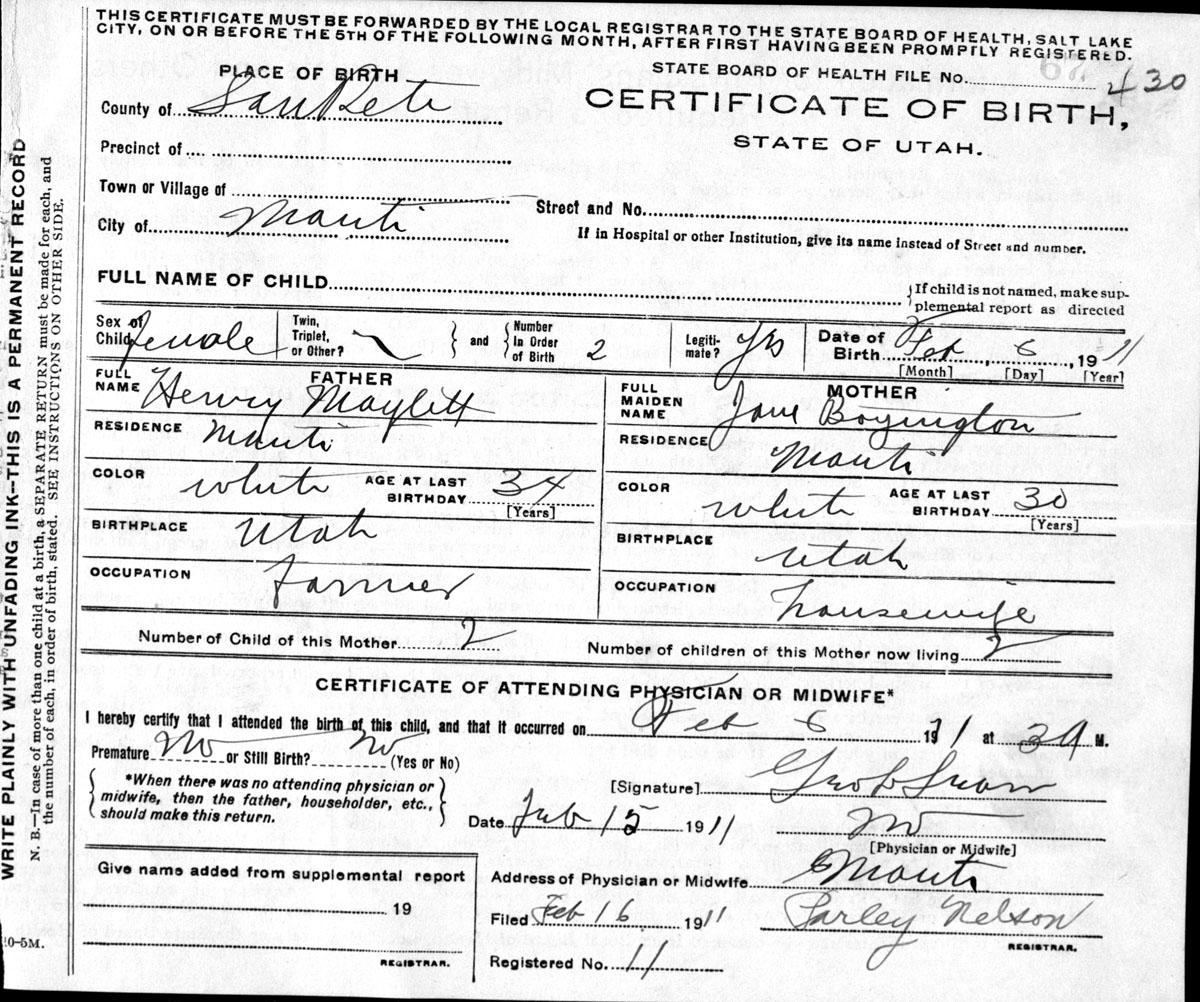 THIS CERTIFICATE MUST BE FORWARDED BY THE LOCAL REGISTRAR TO THE STATE BOARD OF HEALTH, SALT LAKE
CITY, ON OR BEFORE THE 5TH OF THE FOLLOWING MONTH, AFTER FIRST HAVING BEEN PROMPTLY REGISTERED.
PLACE OF BIRTH
STATE BOARD OF HEALTH FILE No. 430
County of SanPete
CERTIFICATE OF BIRTH,
STATE OF UTAH.
Precinct of
Town or Village of
Street and No.
City of Manti
If in Hospital or other Institution, give its name instead of Street and number.
FULL NAME OF CHILD
{If child is not named, make sup-
plemental report as directed
Sex of Child female
Twin, Triplet, or Other?
} and { Number In Order of Birth 2
Legiti-mate? Yes
Date of Birth Feb 6, 1911
[Month] [Day] [Year]
FATHER
FULL NAME Henry Maylett
RESIDENCE Manti
COLOR white AGE AT LAST BIRTHDAY 34
[Years]
BIRTHPLACE Utah
OCCUPATION Farmer
MOTHER
FULL MAIDEN NAME Jane Boyington
RESIDENCE Manti
COLOR white AGE AT LAST BIRTHDAY 30
[Years]
BIRTHPLACE Utah
OCCUPATION housewife
Number of Child of this Mother 2
Number of children of this Mother now living 2
CERTIFICATE OF ATTENDING PHYSICIAN OR MIDWIFE*
I hereby certify that I attended the birth of this child, and that it occurred on Feb 6 1911 at 3 A M.
Premature No or Still Birth? No (Yes or No)
{ *When there was no attending physician or
midwife, then the father, householder, etc.,
should make this return. }
[Signature] Geo L
Date Feb 15 1911
[Physician or Midwife]
Give name added from supplemental report
19
REGISTRAR.
Address of Physician or Midwife Manti
Filed Feb 16 1911 Parley Nelson
REGISTRAR.
Registered No. 11
20-5M.
WRITE PLAINLY WITH UNFADING INK--THIS IS A PERMANENT RECORD
N. B.—In case of more than one child at a birth, a SEPARATE RETURN must be made for each, and
the number of each, in order of birth, stated. SEE INSTRUCTIONS ON OTHER SIDE.